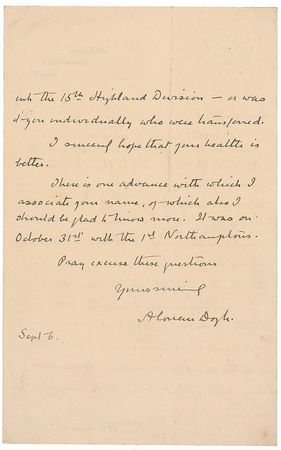 into the 15th Highland Division – or was
it you individually who were transferred.
I sincerely hope that your health is
better.
There is one advance with which I
associate your name, of which also I
should be glad to know more. It was on
October 31st with the 1st Northamptons.
Pray excuse these questions
Yours sincerely
A Conan Doyle.
Sept 6.